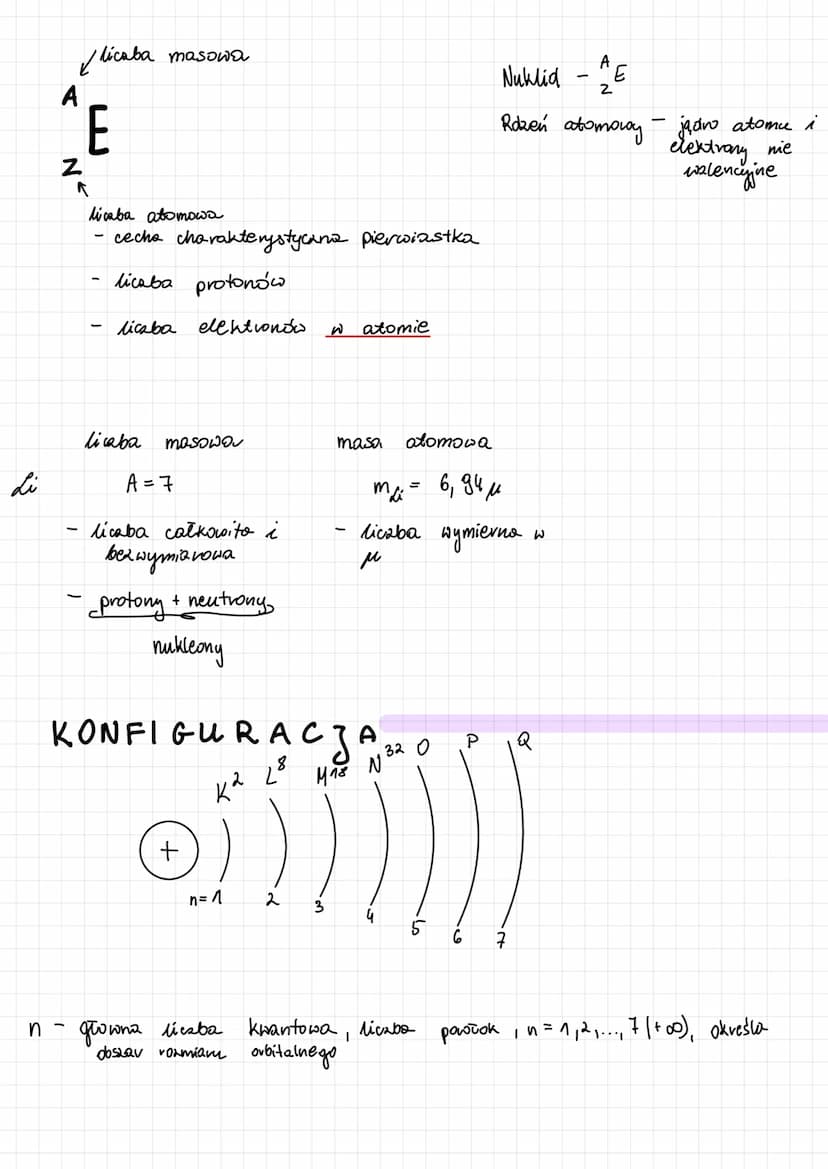 liczba masowa
A
E
Z
liczba atomowa
- cecha charakterystyczna pierwiastka
- liczba protonów
- liczba elektronów w atomie
Nuklid - A Z E
Rdzeń atomowy - jądro atomu i
elektrony nie
walencyjne
liczba masowa
masa atomowa
Li
A = 7
m Li = 6,94 μ
- liczba całkowita i
bezwymiarowa
- liczba wymierna w
μ
- protony + neutrony
nukleony
KONFIGURACJA
K² L⁸ M¹⁸ N³² O P Q
+
n=1 2 3 4 5 6 7
n - główna liczba kwantowa, liczba powłok, n = 1,2,..., 7 (+∞), określa
rozmiar orbitalnego